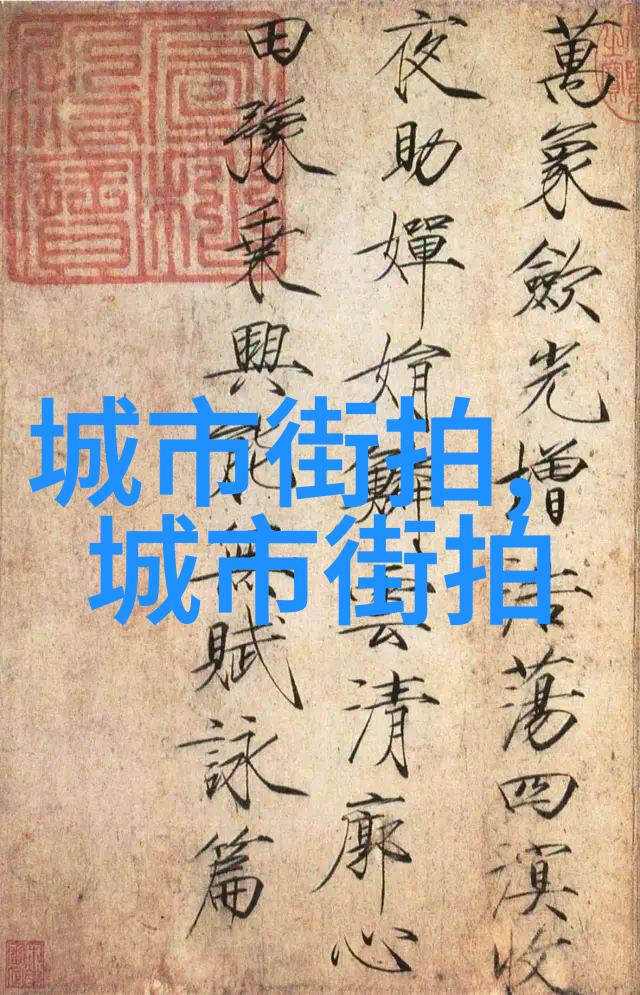 萬象歛光增浩蕩四溟收
夜助嬋娟鱗雲清廓心
田豫乘興能無賦詠篇
城市街拍,
城市街拍